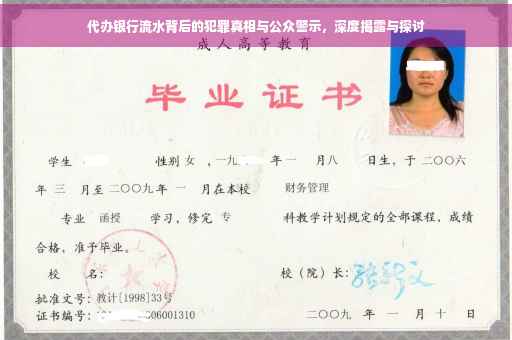 代办银行流水背后的犯罪真相与公众警示，深度揭露与探讨
成人高等教育
毕业证书
学生 性别 女 ，一九 年 一 月八 日生，于 二〇〇六
年 三 月至 二〇〇九 年 一 月在本校 财务管理
专业 函授 学习，修完 专 科教学计划规定的全部课程，成绩
合格，准予毕业。
校 名： 校（院）长：
批准文号：教计[1998]33号
证书编号： 006001310 二〇〇九 年 一 月 十 日